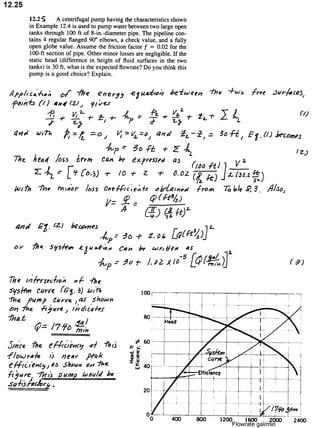 12.25
12.25 A centrifugal pump having the characteristics shown
in Example 12.4 is used to pump water between two large open
tanks through 100 ft of 8-in.-diameter pipe. The pipeline con-
tains 4 regular flanged 90° elbows, a check valve, and a fully
open globe valve. Assume the friction factor f = 0.02 for the
100-ft section of pipe. Other minor losses are negligible. If the
static head (difference in height of fluid surfaces in the two
tanks) is 30 ft, what is the expected flowrate? Do you think this
pump is a good choice? Explain.
Application of the energy equation between the two free surfaces,
points (1) and (2), gives
p₁/γ + V₁²/2g + z₁ + hp = p₂/γ + V₂²/2g + z₂ + Σ hL (1)
and with p₁ = p₂ = 0, V₁ = V₂ = 0, and z₂ - z₁ = 30 ft, Eq. (1) becomes
hp = 30 ft + Σ hL (2)
The head loss term can be expressed as
Σ hL = [4 (0.3) + 10 + 2 + 0.02 (100 ft)/(8/12 ft)] V²/2(32.2 ft/s²)
with the minor loss coefficients obtained from Table 8.3. Also,
V = Q/A = Q (ft³/s)/(π/4)(8/12 ft)²
and Eq. (2) becomes
hp = 30 + 2.06 [Q(ft³/s)]²
or the system equation can be written as
hp = 30 + 1.02 x 10⁻⁵ [Q(gal/min)]² (3)
The intersection of the
system curve (Eq. 3) with
the pump curve, as shown
on the figure, indicates
that
Q = 1740 gal/min
Since the efficiency at this
flowrate is near peak
efficiency, as shown on the
figure, this pump would be
satisfactory.
100
80
60
40
20
0
Head, ft
Efficiency, %
Head
System
curve
Efficiency
1740 gpm
0 400 800 1200 1600 2000 2400
Flowrate gal/min